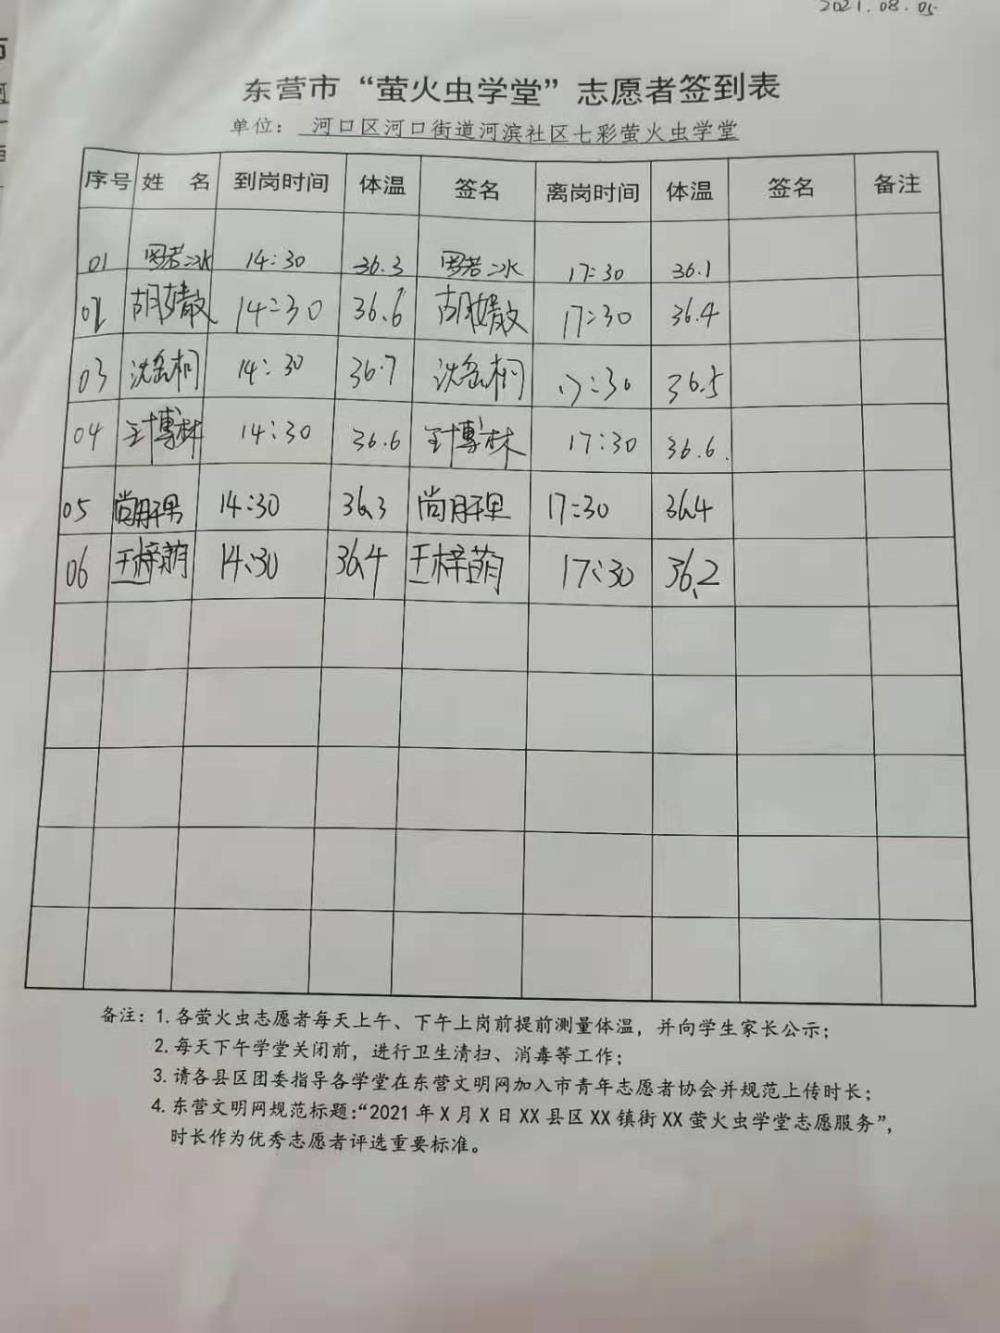 2021.08.05
东营市“萤火虫学堂”志愿者签到表
单位： 河口区河口街道河滨社区七彩萤火虫学堂
序号 姓 名 到岗时间 体温 签名 离岗时间 体温 签名 备注
01 周若冰 14:30 36.3 周若冰 17:30 36.1
02 胡婧散 14:30 36.6 胡婧散 17:30 36.4
03 沈岳桐 14:30 36.7 沈岳桐 17:30 36.5
04 博林 14:30 36.6 博林 17:30 36.6.
05 尚 14:30 36.3 尚 17:30 36.4
06 王梓萌 14:30 36.4 王梓萌 17:30 36.2
备注：1.各萤火虫志愿者每天上午、下午上岗前提前测量体温，并向学生家长公示；
2.每天下午学堂关闭前，进行卫生清扫、消毒等工作；
3.请各县区团委指导各学堂在东营文明网加入市青年志愿者协会并规范上传时长；
4.东营文明网规范标题：“2021年X月X日XX县区XX镇街XX萤火虫学堂志愿服务”，
时长作为优秀志愿者评选重要标准。